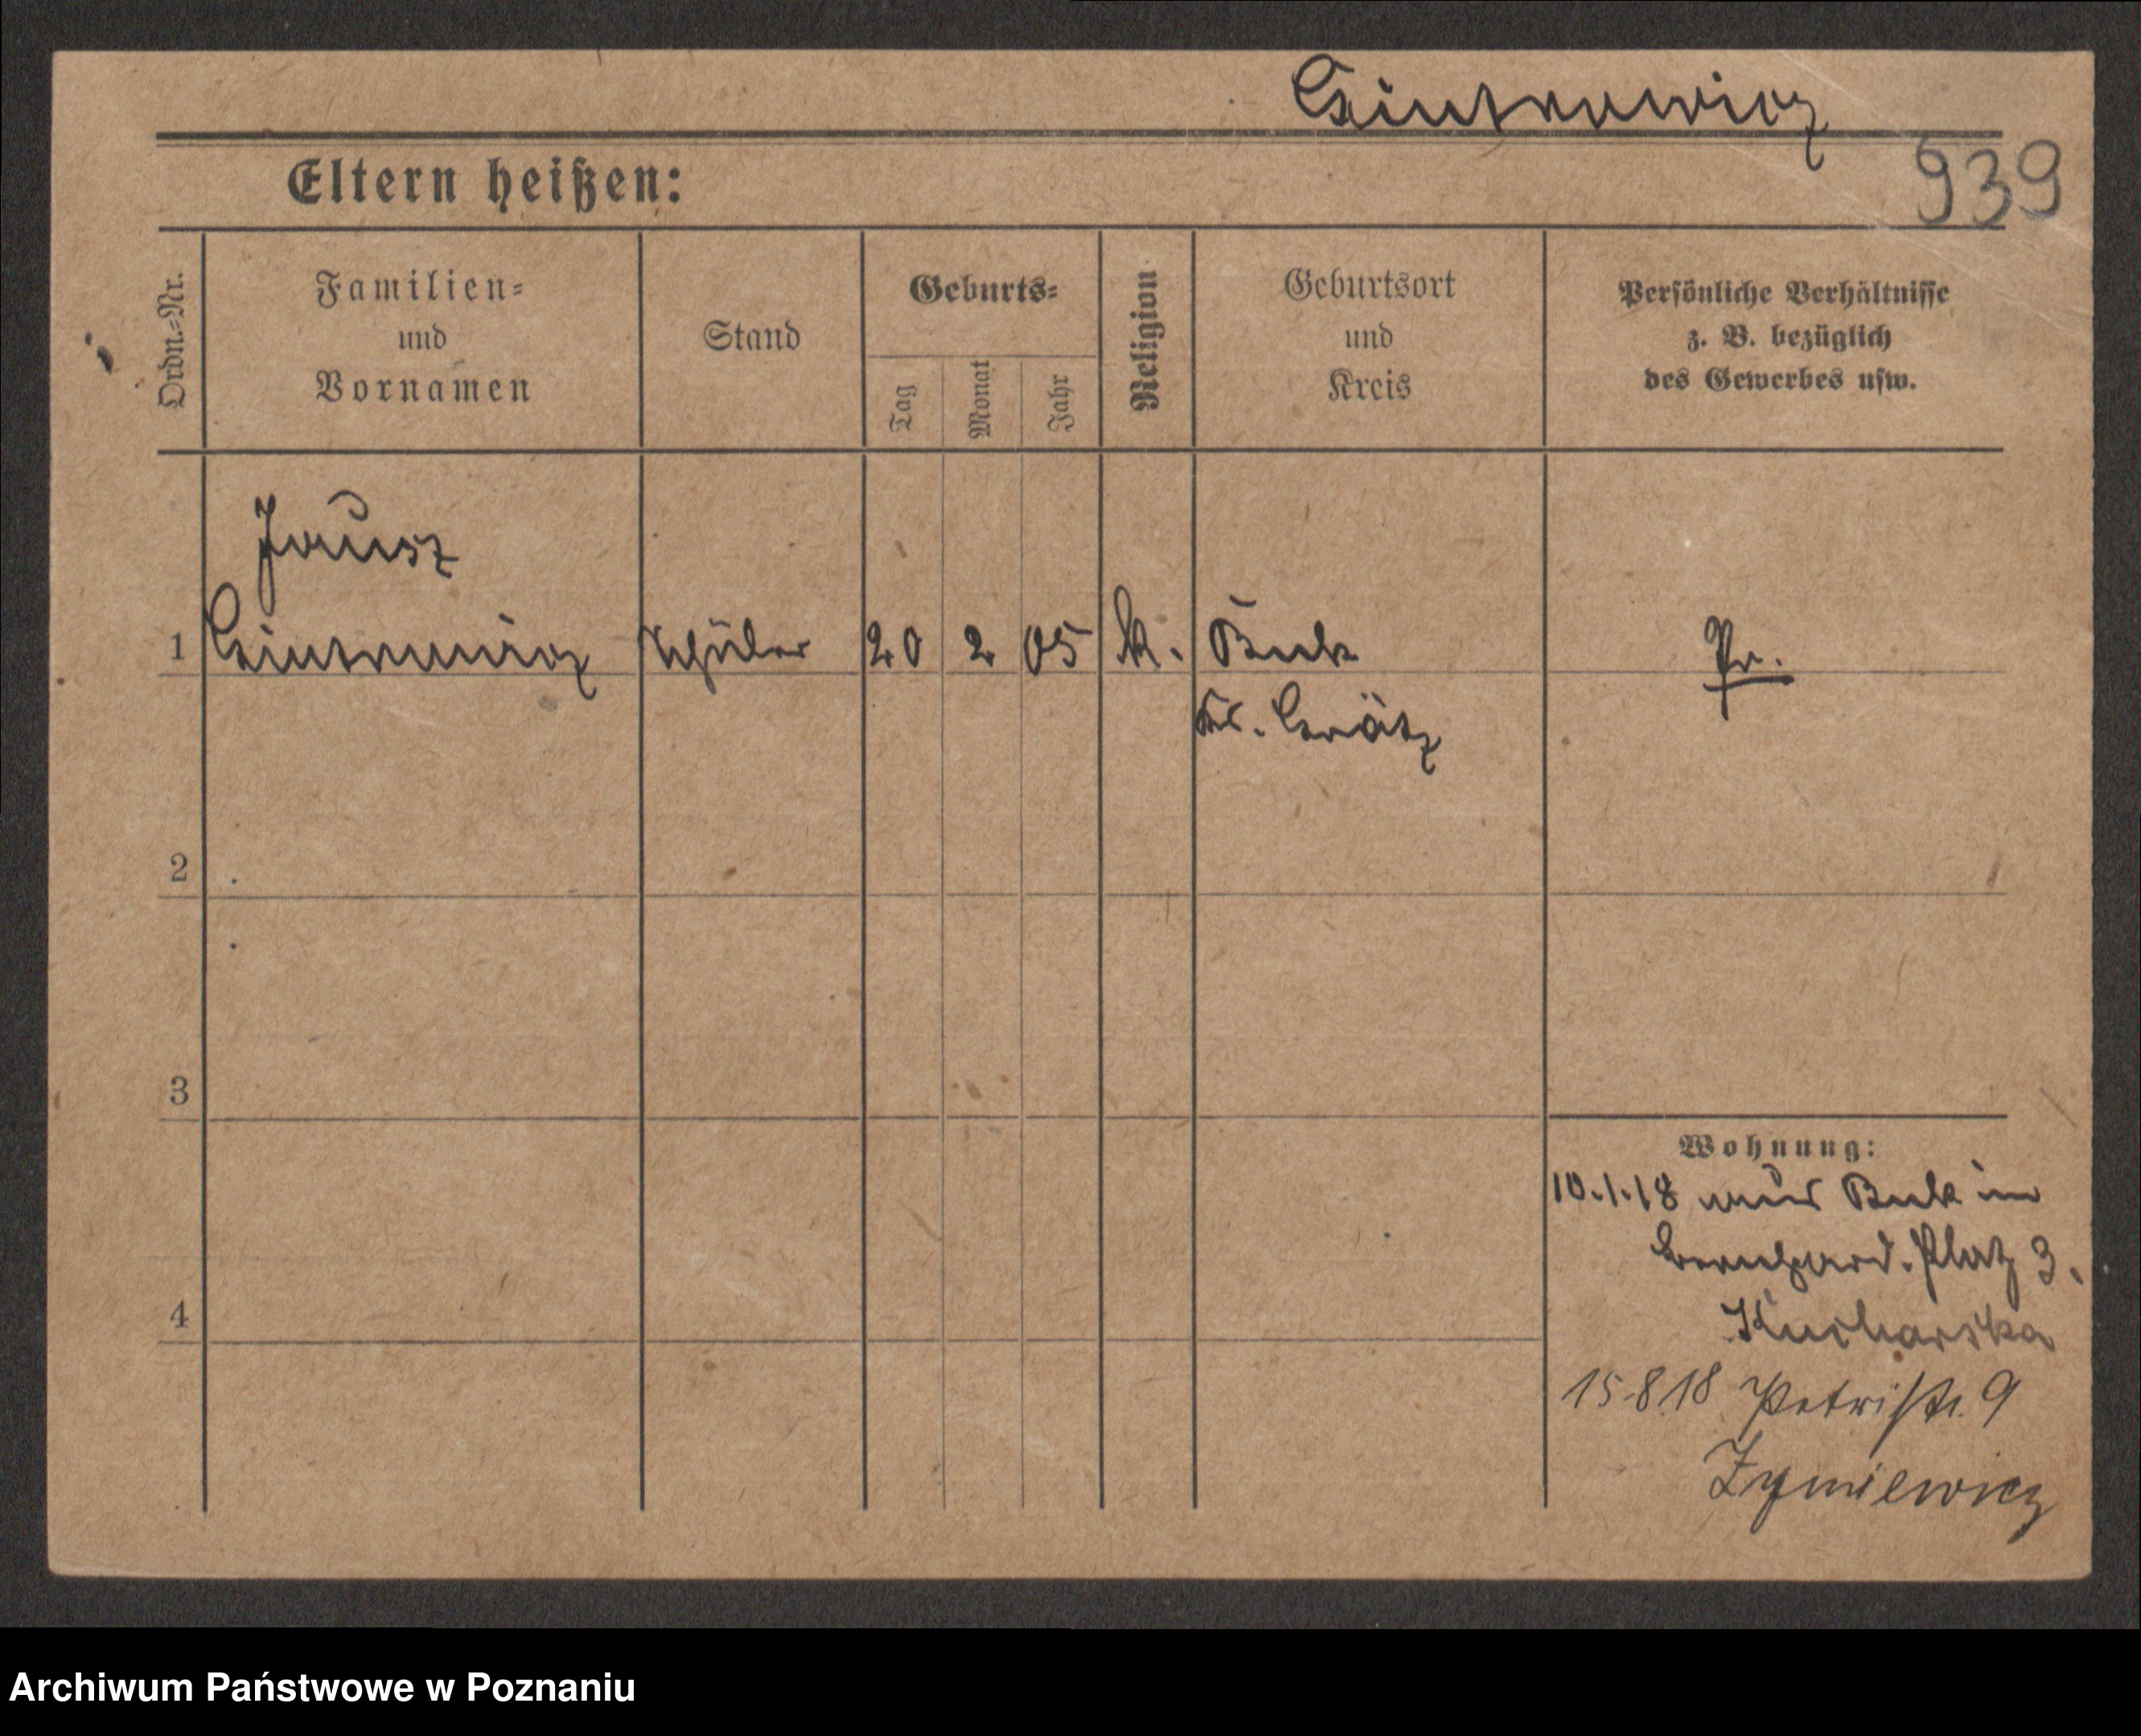 Gintrowicz
939
Eltern heißen:
Ordn.-Nr.
Familien- und Vornamen
Stand
Geburts-
Tag
Monat
Jahr
Religion
Geburtsort und Kreis
Persönliche Verhältnisse
z. B. bezüglich
des Gewerbes usw.
Janusz
1 Gintrowicz Schüler 20 2 05 k. Buk Pr.
Kr. Grätz
2
3
Wohnung:
10.1.18 aus Buk in
Bernhard. Platz 3.
Kucharska
4
15.8.18 Petristr. 9
Archiwum Państwowe w Poznaniu